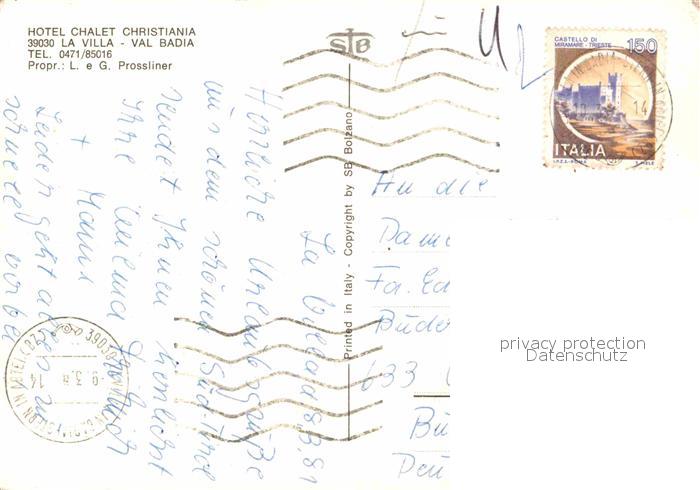 HOTEL CHALET CHRISTIANIA
39030 LA VILLA - VAL BADIA
TEL. 0471/85016
Propr.: L. e G. Prossliner
STB
Printed in Italy - Copyright by SB Bolzano
CASTELLO DI
MIRAMARE - TRIESTE
150
ITALIA
I.P.Z.S. - ROMA
La Villa d. 8.3.81
Herzliche Urlaubsgrüße
aus dem schönen Süd-Tirol
sendet Ihnen herzlichst
Ihre
+ Hans
Leider geht alles zu
schnell vorbei
An die
Fa.
633
privacy protection
Datenschutz
39030
14